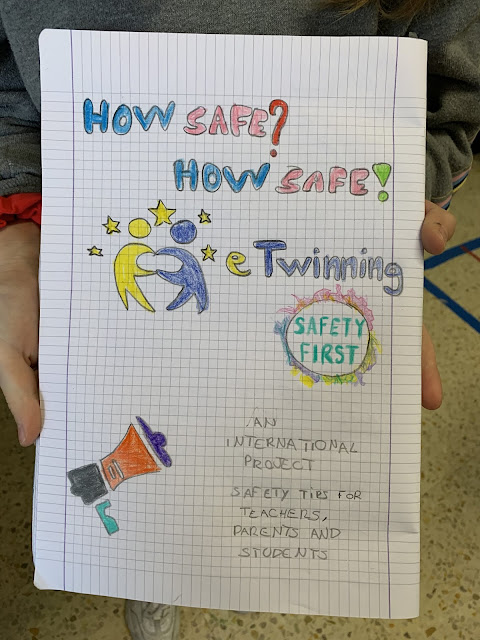 HOW SAFE?
HOW SAFE!
eTwinning
SAFETY
FIRST
AN
INTERNATIONAL
PROJECT
SAFETY TIPS FOR
TEACHERS,
PARENTS AND
STUDENTS